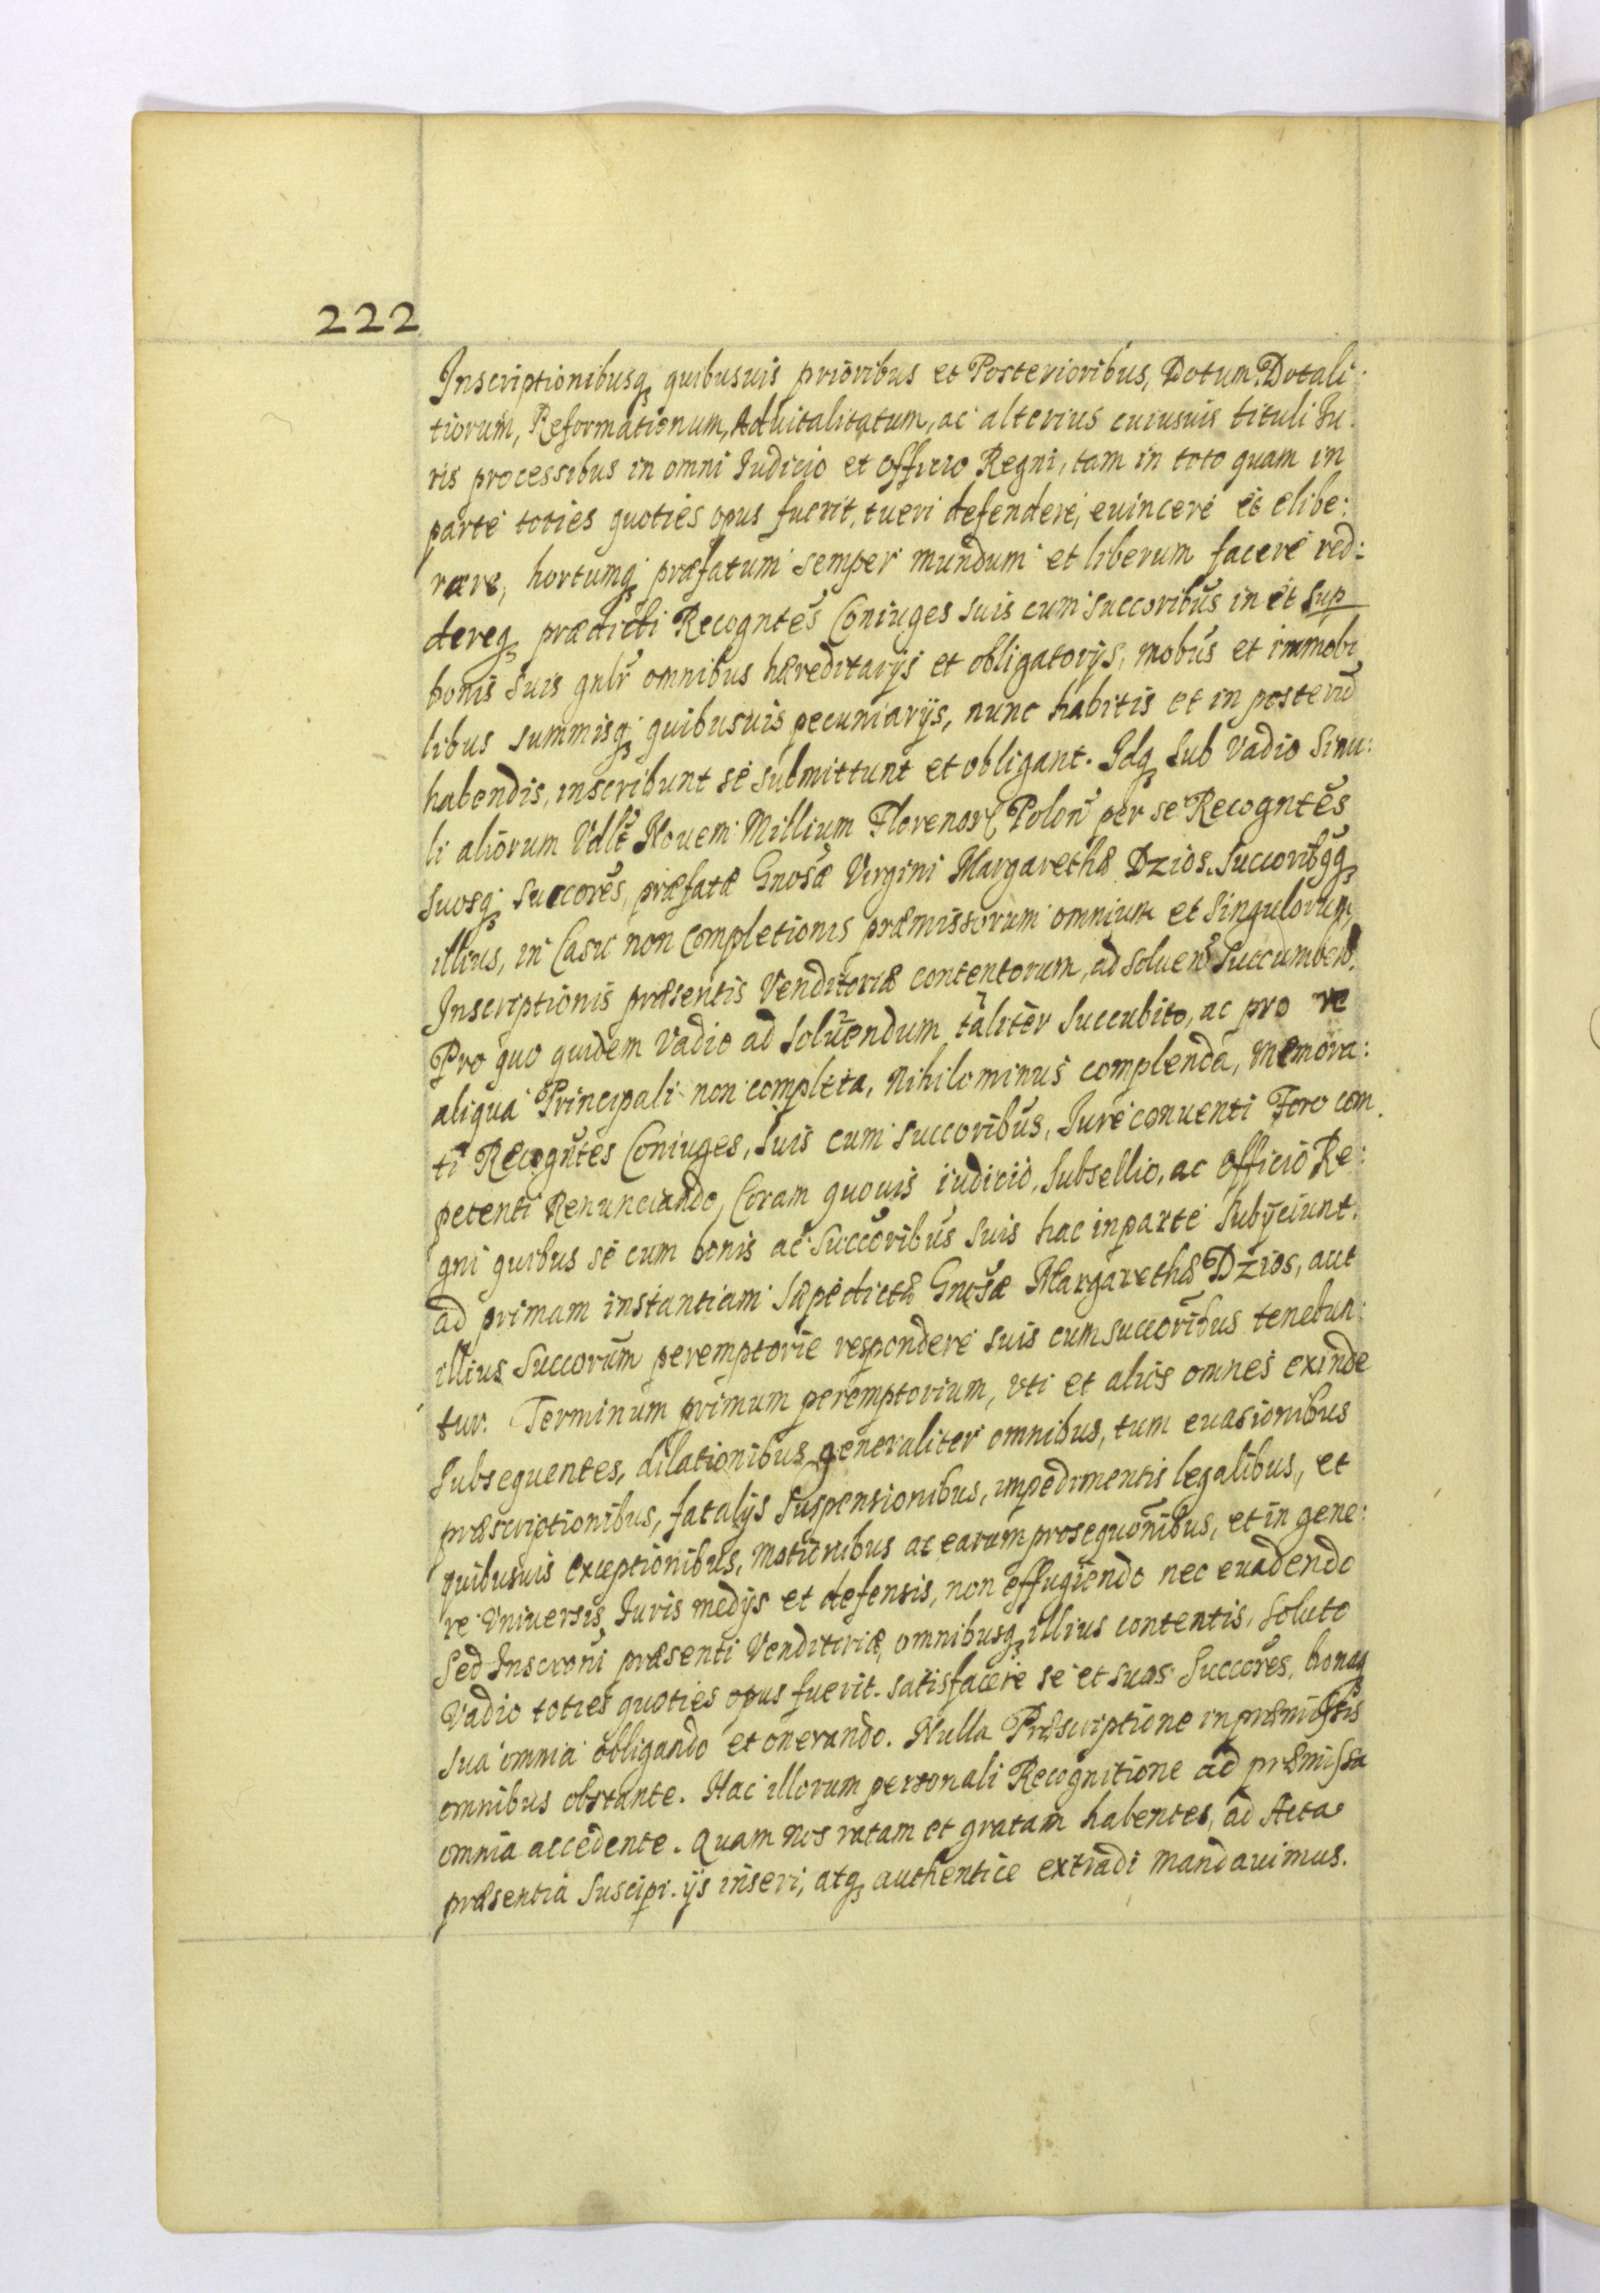 222
Inscriptionibusq₃ quibusuis prioribus et Posterioribus, Dotum, Dotali:
tiorum, Reformationum, Aduitalitatum, ac alterius cuiusuis tituli Iu:
ris processibus in omni Iudicio et Officio Regni, tam in toto quam in
parte toties quoties opus fuerit, tueri defendere, euincere et elibe:
rare, hortumq₃ præfatum semper mundum et liberum facere red:
dereq₃ prædicti Recogntẽs Coniuges suis cum succoribũs in et sup
bonis suis gnlr̃ omnibus hæreditarijs et obligatorijs, mobũs et immobi
libus summisq₃ quibusuis pecuniarijs, nunc habitis et in posterũ
habendis, inscribunt se submittunt et obligant. Idq₃ sub vadio simi:
li aliorum Vdlt̃ Nouem Millium Florenor̃ Polon̄ per se Recogntẽs
suosq₃ succorẽs, præfatæ Gnosæ̃ Virgini Margarethæ Dzios, succoribq₃q₃
illius, in Casu non completionis præmissorum omnium et singulorum
Inscriptionis præsentis Venditoriæ contentorum, ad soluend̃ succumbend̃.
Pro quo quidem vadio ad soluendum taliter succubito, ac pro re
aliqua Principali non completa, nihilominus complenda, memora:
ti Recogntẽs Coniuges, suis cum succoribũs, Iure conuenti Foro com:
petenti Renunciando, Coram quouis iudicio, subsellio, ac officio Re:
gni quibus se cum bonis ac succoribũs suis hac in parte subijciunt.
ad primam instantiam sæpedictæ Gnosæ̃ Margarethæ Dzios, aut
illius succorum̃ peremptorie respondere suis cum succoribũs tenebun:
tur. Terminum primum peremptorium, vti et alios omnes exinde
subsequentes, dilationibus generaliter omnibus, tum euasionibus
præscriptionibus, fatalijs suspensionibus, impedimentis legalibus, et
quibusuis exceptionibus, motionibus ac earum prosequõnibus, et in gene:
re vniuersis Iuris medijs et defensis, non effugiendo nec euadendo
sed Inscrõni præsenti Venditoriæ, omnibusq₃ illius contentis, soluto
vadio toties quoties opus fuerit. satisfacere se et suos succorẽs, bonaq₃
sua omnia obligando et onerando. Nulla Præscriptione in præmissis
omnibus obstante. Hac illorum personali Recognitione ad præmissa
omnia accedente. Quam nos ratam et gratam habentes, ad Acta
præsentia suscipi. ijs inseri, atq₃ authentice extradi mandauimus.